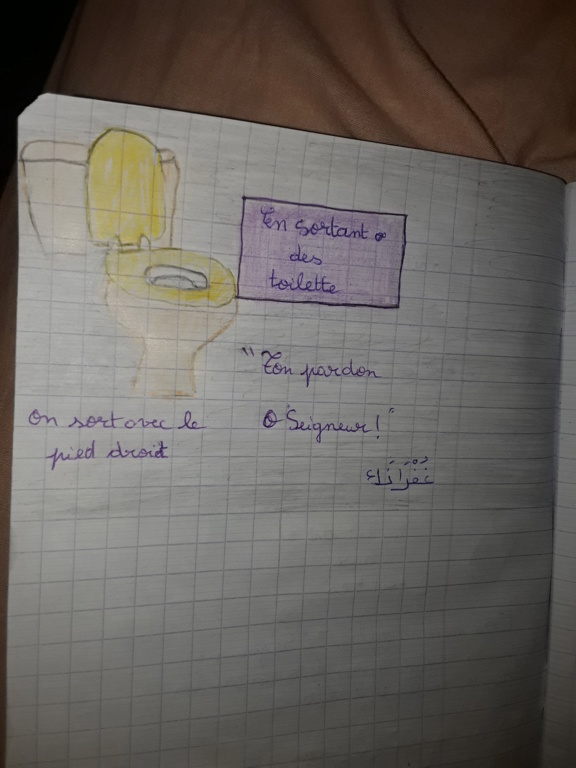 En sortant
des
toilette
"Ton pardon
Ô Seigneur!"
on sort avec le
pied droit
غُفْرَانَكَ